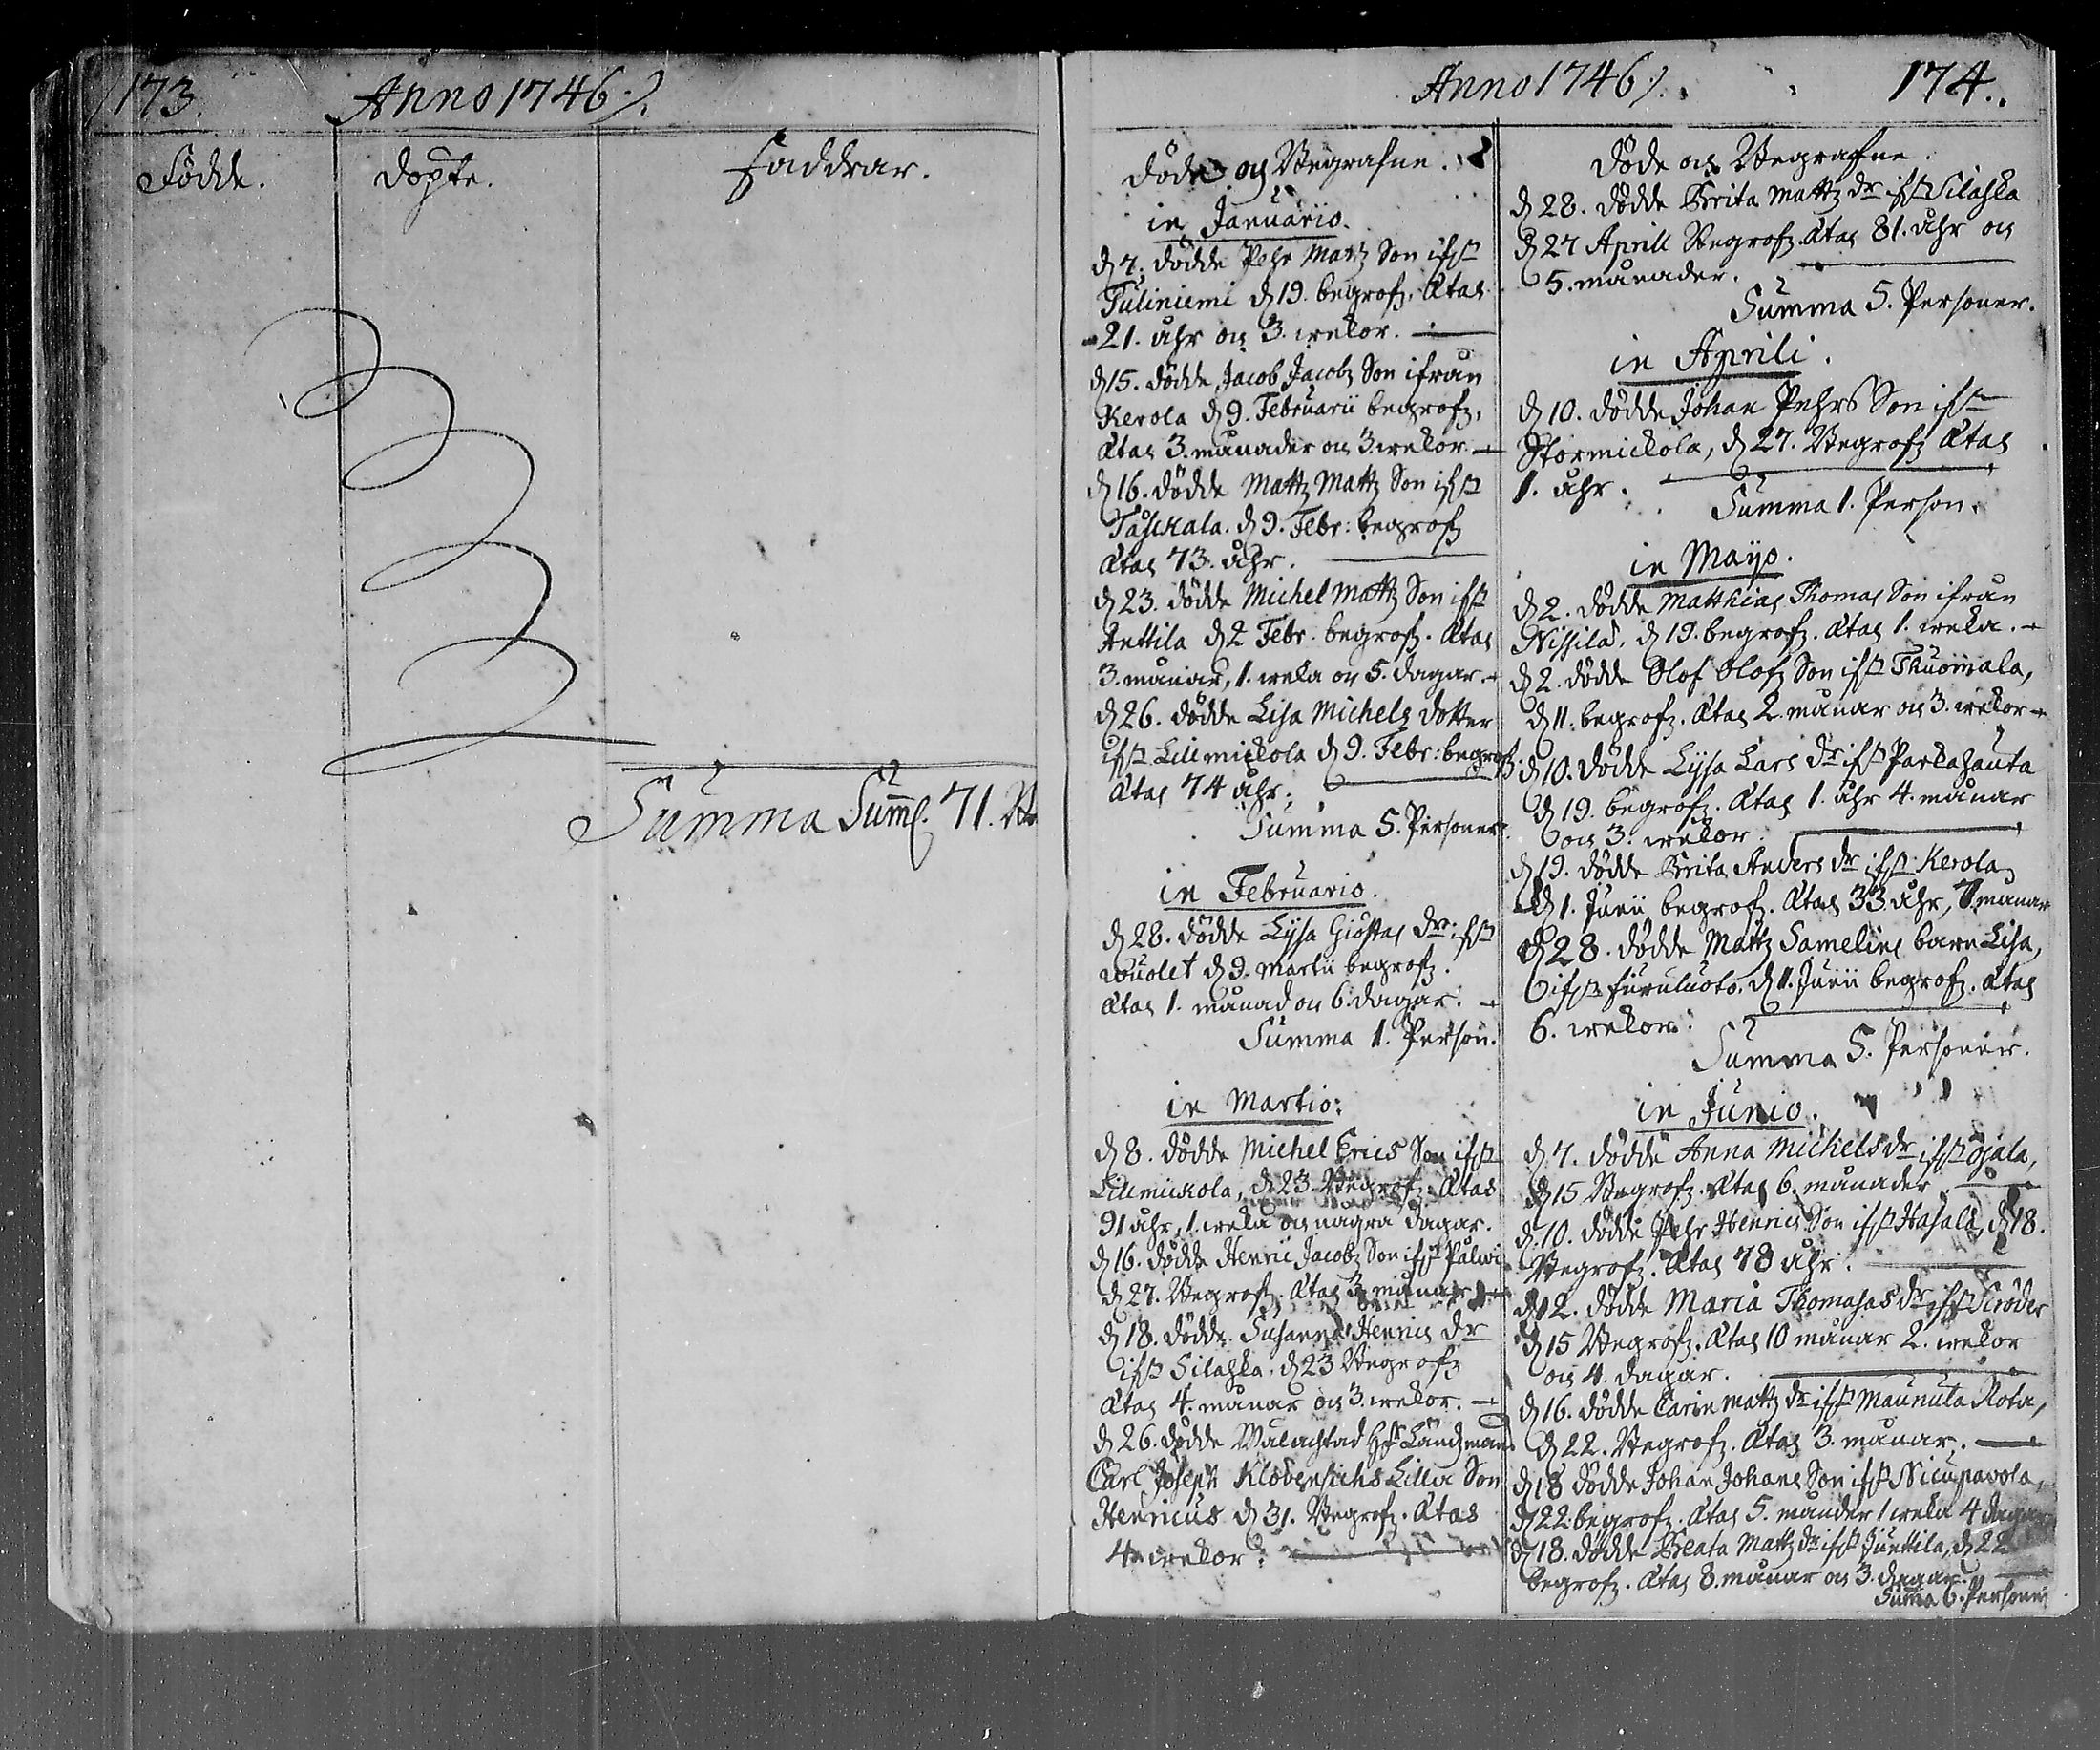 173.
Anno 1746.
Födde.
Döpte.
Faddrar.
Summa Summ. 71.
Anno 1746.
174.
Döde och Begrafne.
in Januario.
d 7. dödde Pehr Matz Son ifr
Tuliniemi d 19. begrofz. Ætas
21. åhr och 3. wekor.
d 15. dödde Jacob Jacobz Son ifrån
Kerola d 9. Februarii begrofz.
Ætas 3. månader och 3. wekor.
d 16. dödde Mattz Mattz Son ifr
d 9. Febr: begrofz
Ætas 73. åhr.
d 23. dödde Michel Mattz Son ifr
Anttila d 2 Febr. begrofz. Ætas
3. månar, 1. weka och 5. dagar.
d 26. dödde Lisa Michels dotter
ifr Lillmickola d 9. Febr: begrofz.
Ætas 74 åhr.
Summa 5. Personer.
in Februario.
d 28. dödde Lysa Giöstas dr ifr
d 9. Martii begrofz.
Ætas 1. månad och 6. dagar.
Summa 1. Person.
in Martio:
d 8. dödde Michel Erics Son ifr
Lillmickola, d 23. Begrofz. Ætas
91 åhr, 1. weka och några dagar.
d 16. dödde Henric Jacobz Son ifr Palwi
d 27. Begrofz. Ætas 3 månar
d 18. dödde Susanna Henrics dr
ifr Silaska. d 23 Begrofz
Ætas 4. månar och 3. wekor.
d 26. dödde Länszman
Carl Joseph Lilla Son
Henricus d 31. Begrofz. Ætas
4. wekor.
Döde och Begrafne.
d 28. dödde Brita Mattz dr ifr Silaska
d 27 Aprill Begrofz Ætas 81. åhr och
5. månader.
Summa 5. Personer.
in Aprili.
d 10. dödde Johan Pehrs Son ifr
Stormickola, d 27. Begrofz Ætas
1. åhr.
Summa 1. Person.
in Mayo.
d 2. dödde Matthias Thomas Son ifrån
Nissilä, d 19. begrofz. Ætas 1. weka.
d 2. dödde Olof Olofz Son ifr Thuomala,
d 11. begrofz. Ætas 2. månar och 3. wekor
d 10. dödde Lysa Lars dr ifr Parkahauta
d 19. begrofz. Ætas 1. åhr 4. månar
och 3. wekor.
d 19. dödde Brita Anders dr ifr Kerola
d 1. Junii begrofz. Ætas 33 åhr, 7. månar
d 28. dödde Mattz Samelins barn Lisa,
ifr Furuluoto. d 1. Junii begrofz. Ætas
6. wekor.
Summa 5. Personer.
in Junio.
d 7. dödde Anna Michels dr ifr Ojala,
d 15 Begrofz. Ætas 6. månader
d 10. dödde Pehr Henrics Son ifr Hasala, d 18.
Begrofz. Ætas 78 åhr.
d 12. dödde Maria Thomasas dr ifr
d 15 Begrofz. Ætas 10 månar 2. wekor
och 4. dagar.
d 16. dödde Carin Mattz dr ifr Maunula
d 22. Begrofz. Ætas 3. månar.
d 18 dödde Johan Johans Son ifr
d 22 begrofz. Ætas 5. månder 1 weka 4 dagar
d 18. dödde Beata Mattz dr ifr Junttila, d 22
begrofz. Ætas 8. månar och 3. dagar.
Summa 6. Personer